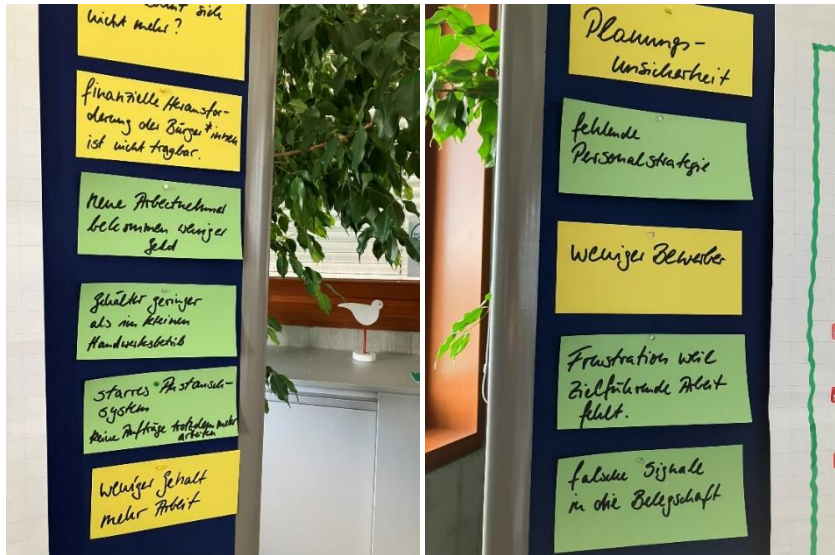 sich
nicht mehr?
finanzielle Herausfor-
derung der Bürger*innen
ist nicht tragbar.
neue Arbeitnehmer
bekommen weniger
Geld
Gehälter geringer
als im kleinen
Handwerksbetrib
starres
system
keine Aufträge trotzdem mehr
arbeiten
weniger Gehalt
mehr Arbeit
Planungs-
unsicherheit
fehlende
Personalstrategie
weniger Bewerber
Frustration weil
Zielführende Arbeit
fehlt.
falsche Signale
in die Belegschaft